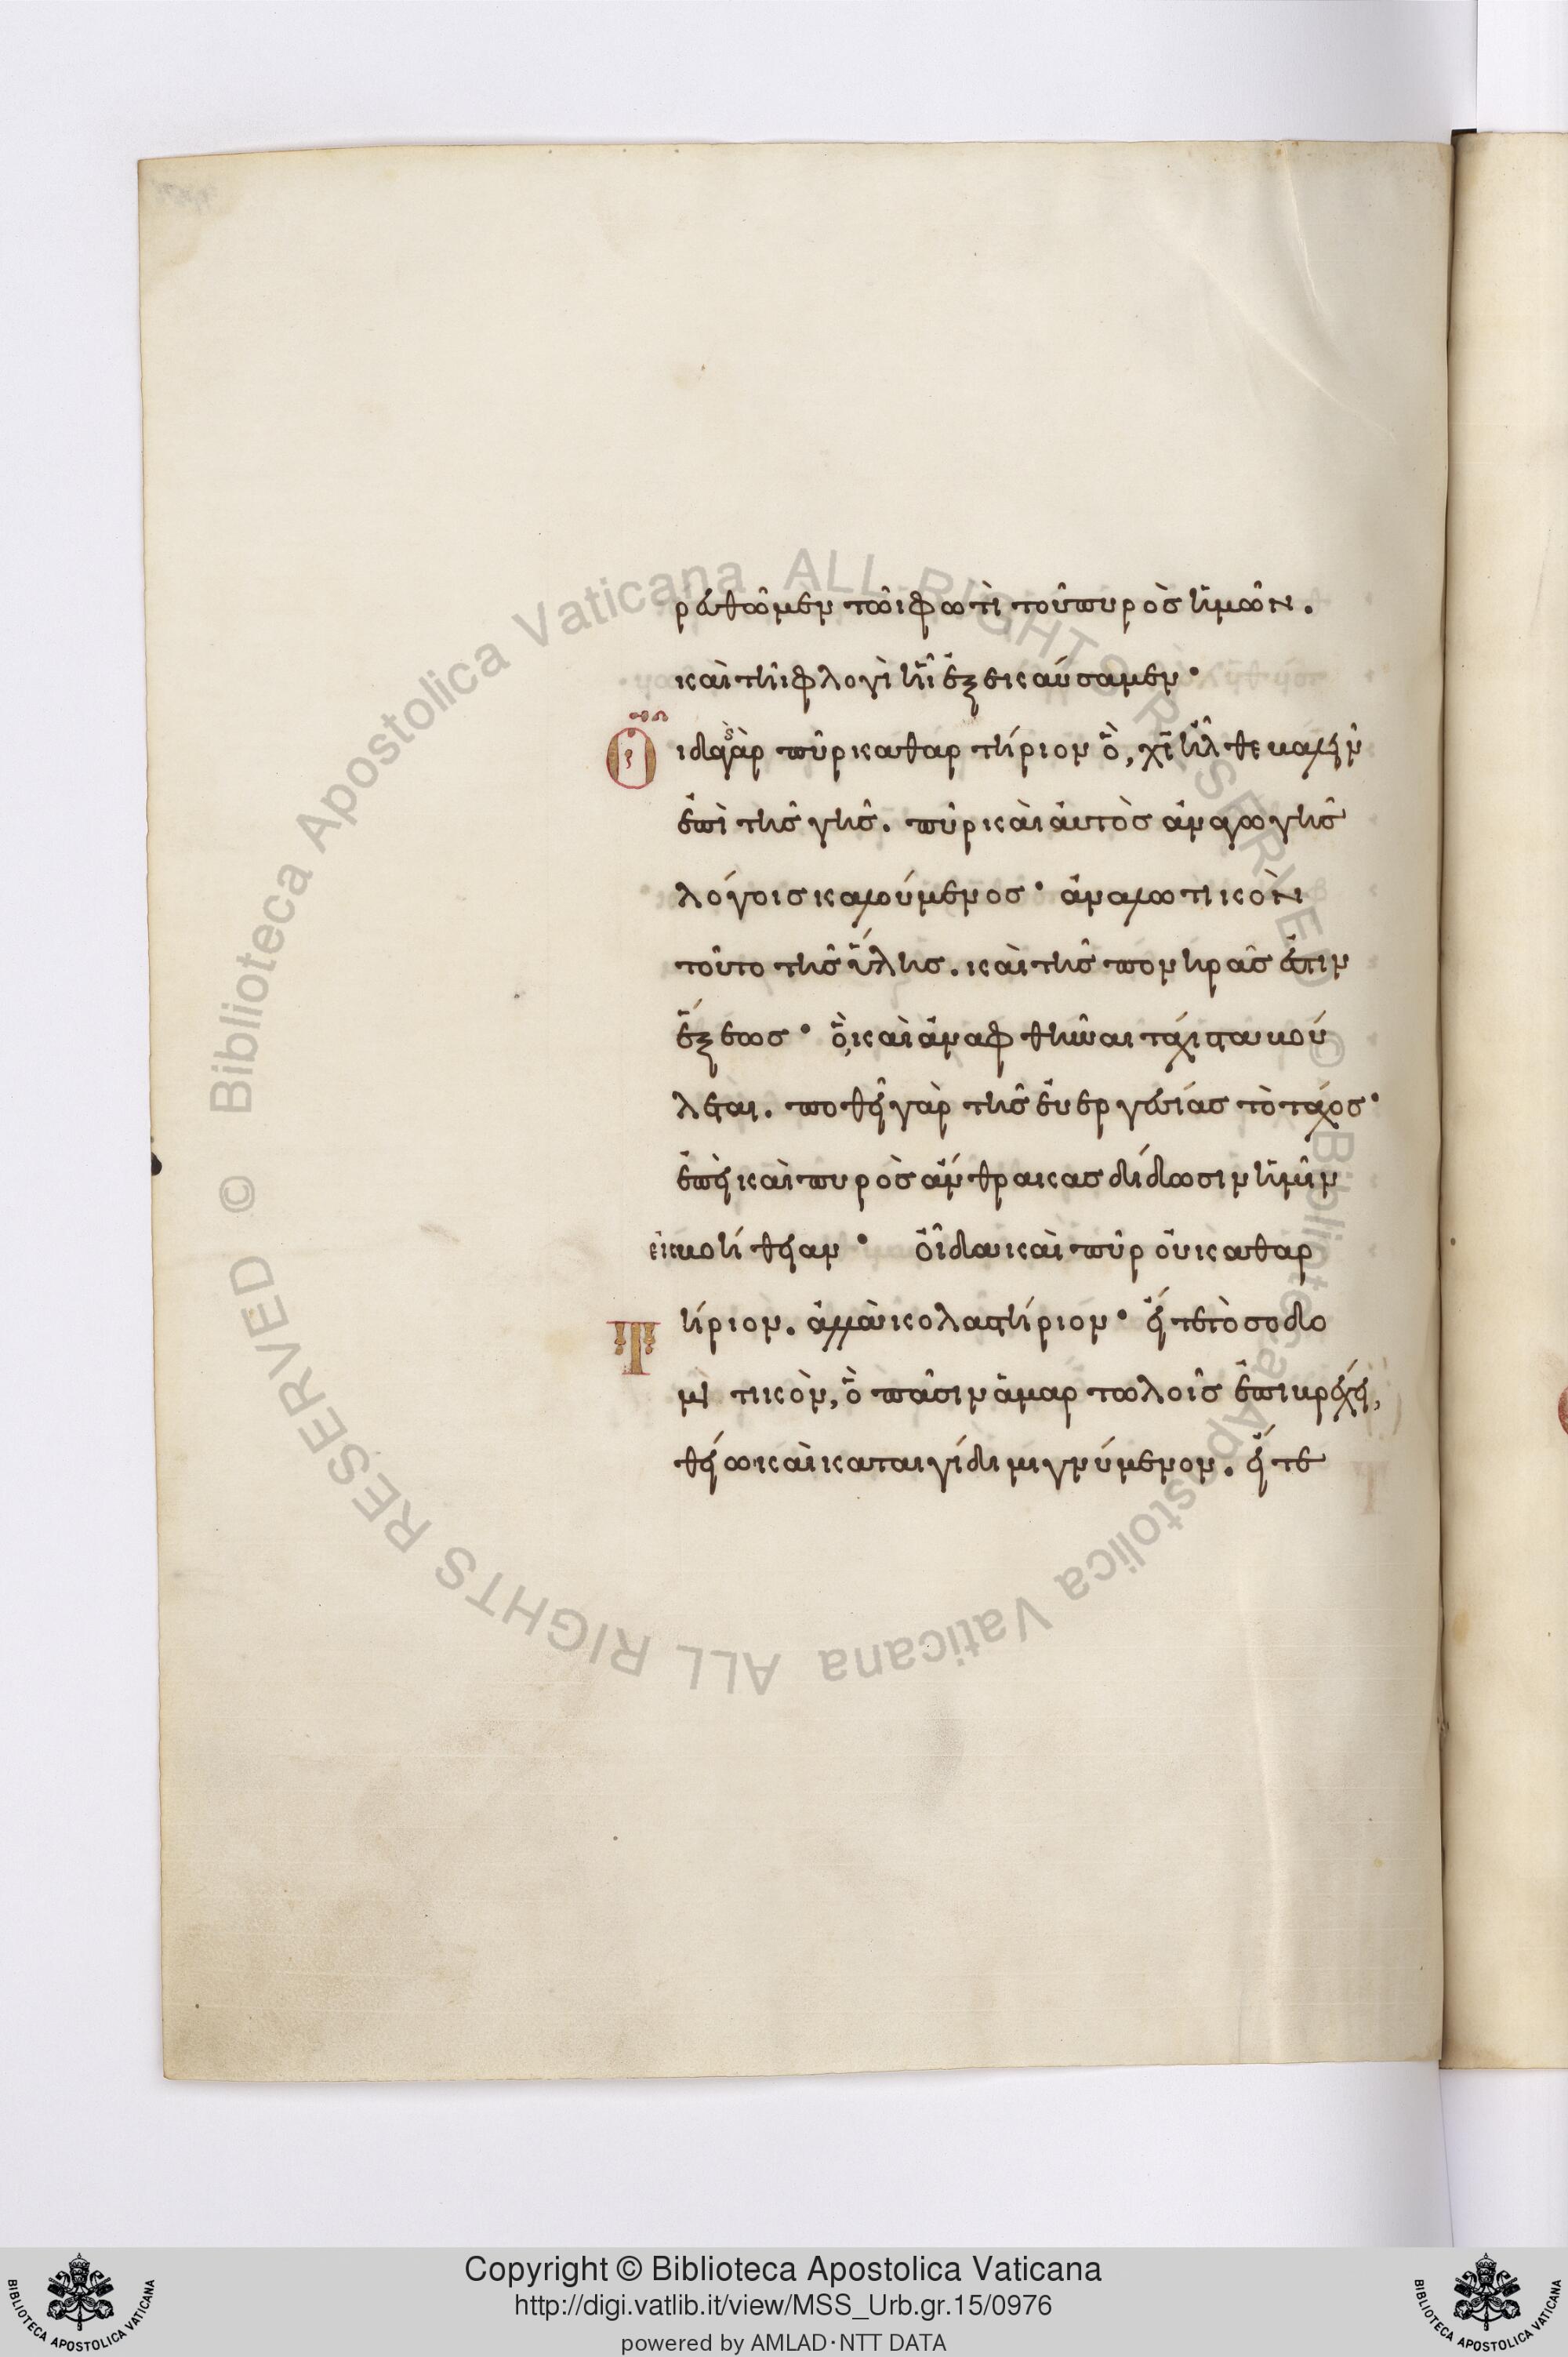 ρευθῶμεν τῶι φωτὶ τοῦ πυρὸς ἡμῶν.
καὶ τῆι φλογὶ ἧι ἐξεκαύσαμεν·
Οἶδα γὰρ πῦρ καθαρτήριον ὃ, χ̅ς̅ ἦλθε βαλεῖν
ἐπὶ τῆς γῆς. πῦρ καὶ αὐτὸς ἀναγωγῆς
λόγοις καλούμενος· ἀναλωτικὸν
τοῦτο τῆς ὕλης. καὶ τῆς πονηρᾶς ἐστιν
ἕξεως· ὃ, καὶ ἀναφθῆναι τάχιστα βού
λεται. ποθεῖ γὰρ τῆς εὐεργεσίας τὸ τάχος·
ἐπεὶ καὶ πυρὸς ἄνθρακας δίδωσιν ἡμῖν
εἰς βοήθειαν· οἶδα καὶ πῦρ οὐ καθαρ
Τήριον. ἀλλὰ κολαστήριον· εἴτε τὸ σοδο
μιτικὸν, ὃ πᾶσιν ἁμαρτωλοῖς ἐπιβρέχει,
θείω καὶ καταιγίδι μιγνύμενον. εἴτε
Copyright © Biblioteca Apostolica Vaticana
http://digi.vatlib.it/view/MSS_Urb.gr.15/0976
powered by AMLAD·NTT DATA
BIBLIOTECA APOSTOLICA VATICANA
BIBLIOTECA APOSTOLICA VATICANA
© Biblioteca Apostolica Vaticana ALL RIGHTS RESERVED
© Biblioteca Apostolica Vaticana ALL RIGHTS RESERVED